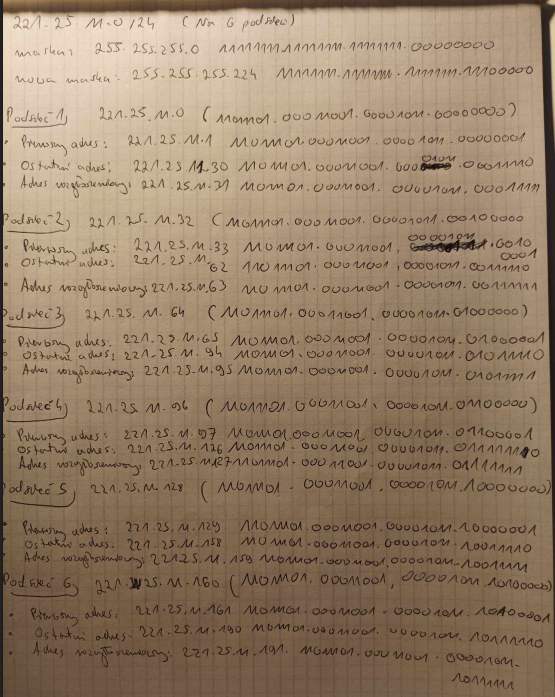 221.25.11.0/24 (Na 6 podsieci)
maska: 255.255.255.0 11111111.11111111.11111111.00000000
nowa maska: 255.255.255.224 11111111.11111111.11111111.11100000
Podsieć 1) 221.25.11.0 (11011101.00011001.00001011.00000000)
• Pierwszy adres: 221.25.11.1 11011101.00011001.00001011.00000001
• Ostatni adres: 221.25.11.30 11011101.00011001.00001011.00011110
• Adres rozgłoszeniowy: 221.25.11.31 11011101.00011001.00001011.00011111
Podsieć 2) 221.25.11.32 (11011101.00011001.00001011.00100000
• Pierwszy adres: 221.25.11.33 11011101.00011001.00001011.00100001
• Ostatni adres: 221.25.11.62 11011101.00011001.00001011.00111110
• Adres rozgłoszeniowy: 221.25.11.63 11011101.00011001.00001011.00111111
Podsieć 3) 221.25.11.64 (11011101.00011001.00001011.01000000)
• Pierwszy adres: 221.25.11.65 11011101.00011001.00001011.01000001
• Ostatni adres: 221.25.11.94 11011101.00011001.00001011.01011110
• Adres rozgłoszeniowy: 221.25.11.95 11011101.00011001.00001011.01011111
Podsieć 4) 221.25.11.96 (11011101.00011001.00001011.01100000)
• Pierwszy adres: 221.25.11.97 11011101.00011001.00001011.01100001
Ostatni adres: 221.25.11.126 11011101.00011001.00001011.01111110
Adres rozgłoszeniowy: 221.25.11.127 11011101.00011001.00001011.01111111
Podsieć 5) 221.25.11.128 (11011101.00011001.00001011.10000000)
• Pierwszy adres: 221.25.11.129 11011101.00011001.00001011.10000001
• Ostatni adres: 221.25.11.158 11011101.00011001.00001011.10011110
• Adres rozgłoszeniowy: 221.25.11.159 11011101.00011001.00001011.10011111
Podsieć 6) 221.25.11.160 (11011101.00011001.00001011.10100000)
• Pierwszy adres: 221.25.11.161 11011101.00011001.00001011.10100001
• Ostatni adres: 221.25.11.190 11011101.00011001.00001011.10111110
• Adres rozgłoszeniowy: 221.25.11.191. 11011101.00011001.00001011.
10111111